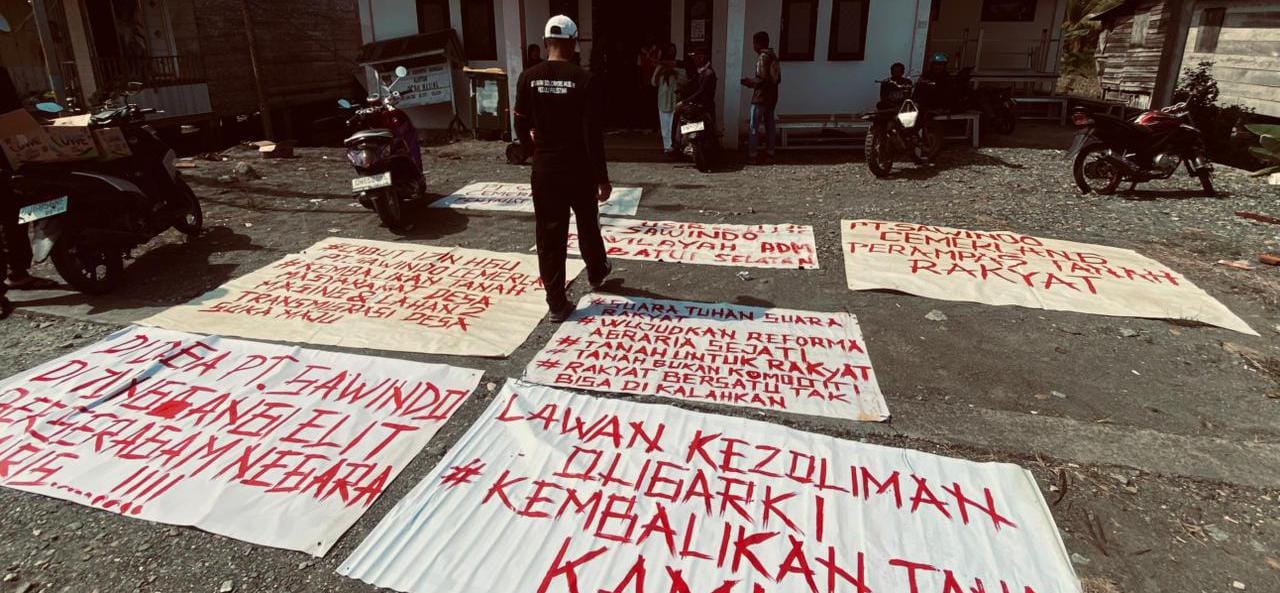 PT. SAWINDO
SAWINDO
WILAYAH ADM
BATUI SELATAN
PT. SAWINDO
CEMERLANG
PERAMPAS TANAH
RAKYAT
#CABUT IZIN HGU
PT. SAWINDO CEMERLANG
TANAH
DESA
MASING & LAHAN 2
TRANSMIGRASI DESA
SUKA MAJU
#SUARA TUHAN SUARA
RAKYAT
#WUJUDKAN REFORMA
AGRARIA SEJATI
#TANAH UNTUK RAKYAT
TANAH BUKAN KOMODIT
#RAKYAT BERSATU TAK
BISA DI KALAHKAN
DIDUGA PT. SAWINDO
DI TUNGGANGI ELIT
BERSERAGAM NEGARA
LAWAN KEZOLIMAN
OLIGARKI
# KEMBALIKAN TANA
KAMI